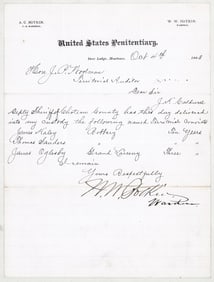 A. C. BOTKIN,
W. W. BOTKIN,
WARDEN.
United States Penitentiary,
Deer Lodge, Montana, Oct 4th 188
Hon J. P. Woolman
Territorial Auditor
Dear Sir
J. K. Caldwell
Depty Sheriff Choteau County has this day delivered
into my custody the following named Territorial Convicts
James Haley Robbery Ten Years
Thomas Sanders " "
James Oglesby Grand Larceny Three "
I remain
Yours Respectfully
W. W. Botkin
Warden